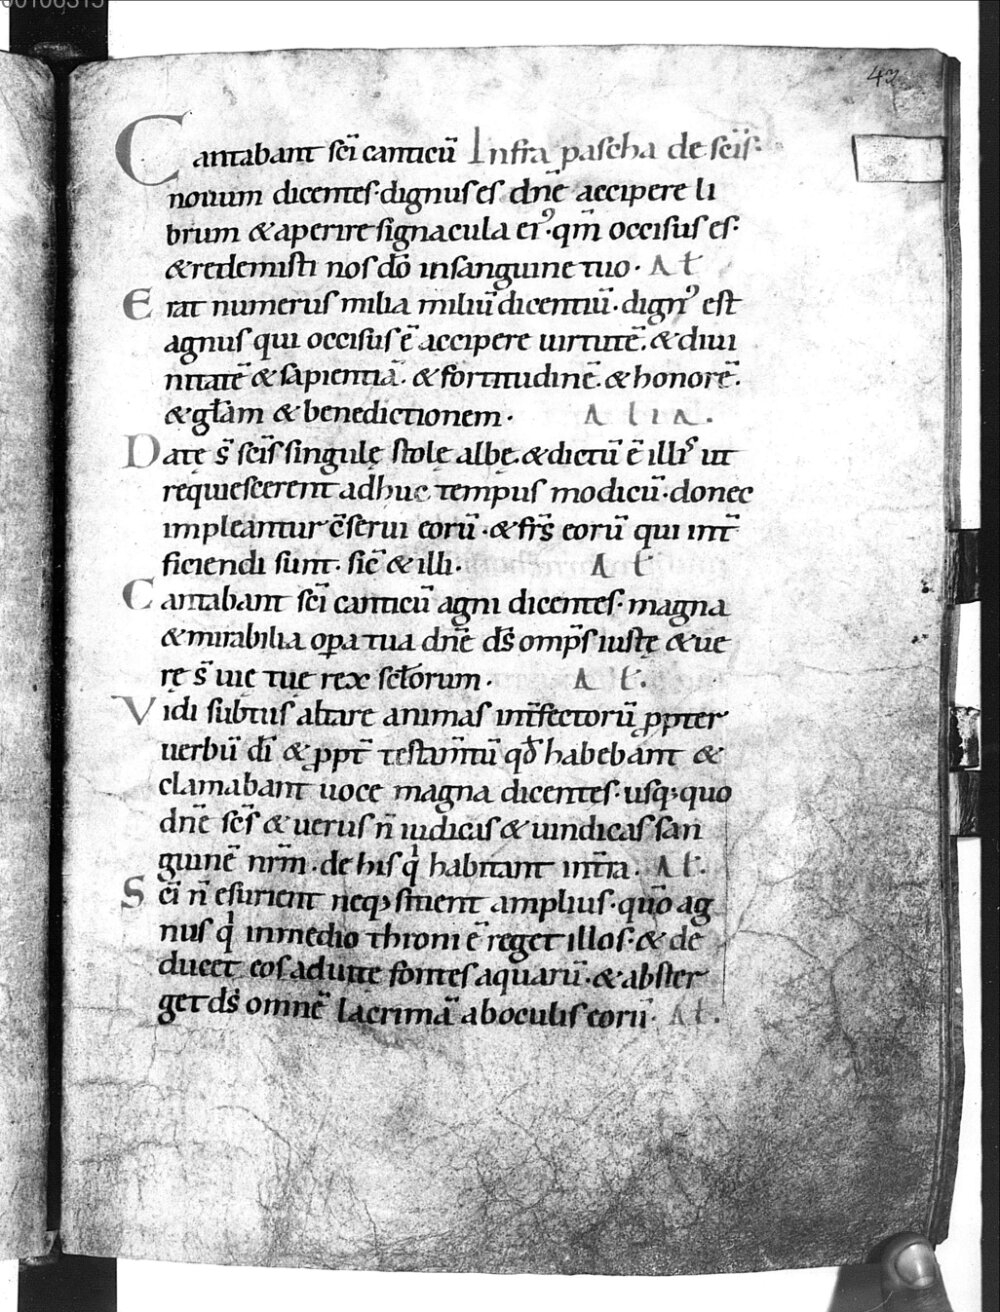 00106315
43
Cantabant sc̄i canticū Infra pascha de sc̄is·
nouum dicentes· dignus es dn̄e accipere li
brum & aperire signacula ei᾽· qm̄ occisus es·
& redemisti nos dō in sanguine tuo· A ł
Erat numerus milia miliū dicentiū· dign᾽ est
agnus qui occisus ē accipere uirtutē· & diui
nitatē & sapientiā· & fortitudinē· & honorē·
& głam & benedictionem· A l i a ·
Datę s̄ sc̄is singulę stolę albę· & dictū ē illis ut
requiescerent adhuc tempus modicū· donec
impleantur c̄serui eorū· & frs̄ eorū qui int̄
ficiendi sunt· sic̄ & illi· A ł
Cantabant sc̄i canticū agni dicentes· magna
& mirabilia opa tua dn̄e ds̄ omps̄ iustę & ue
rę s̄ uię tuę rex scłorum· A ł·
Vidi subtus altare animas int̄fectorū ꝓpter
uerbū dī & ꝓpt̄ testam̄tū qđ habebant &
clamabant uoce magna dicentes· usq; quo
dn̄e sc̄s & uerus n̄ iudicas & uindicas san
guinē nrm̄· de his qͥ habitant int̄ra· A ł·
Sc̄i n̄ esurient neq; sitient amplius· quō ag
nus qͥ in medio throni ē reget illos· & de
ducet eos ad uitę fontes aquarū· & abster
get ds̄ omnē lacrimā ab oculis eorū· A ł·